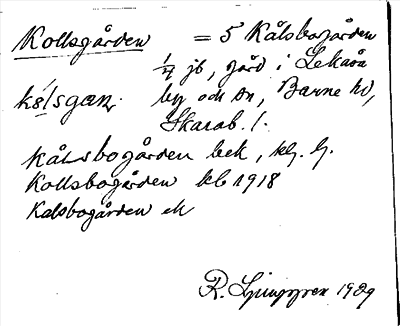 Kollsgården = 5 Kålsbogården
1/4 jb, gård i Lekåsa
by och sn, Barne hd,
Skarab. l.
Kålsbogården bek,
Kollsbogården kb 1918
Kålsbogården ek
R. Ljunggren 1929